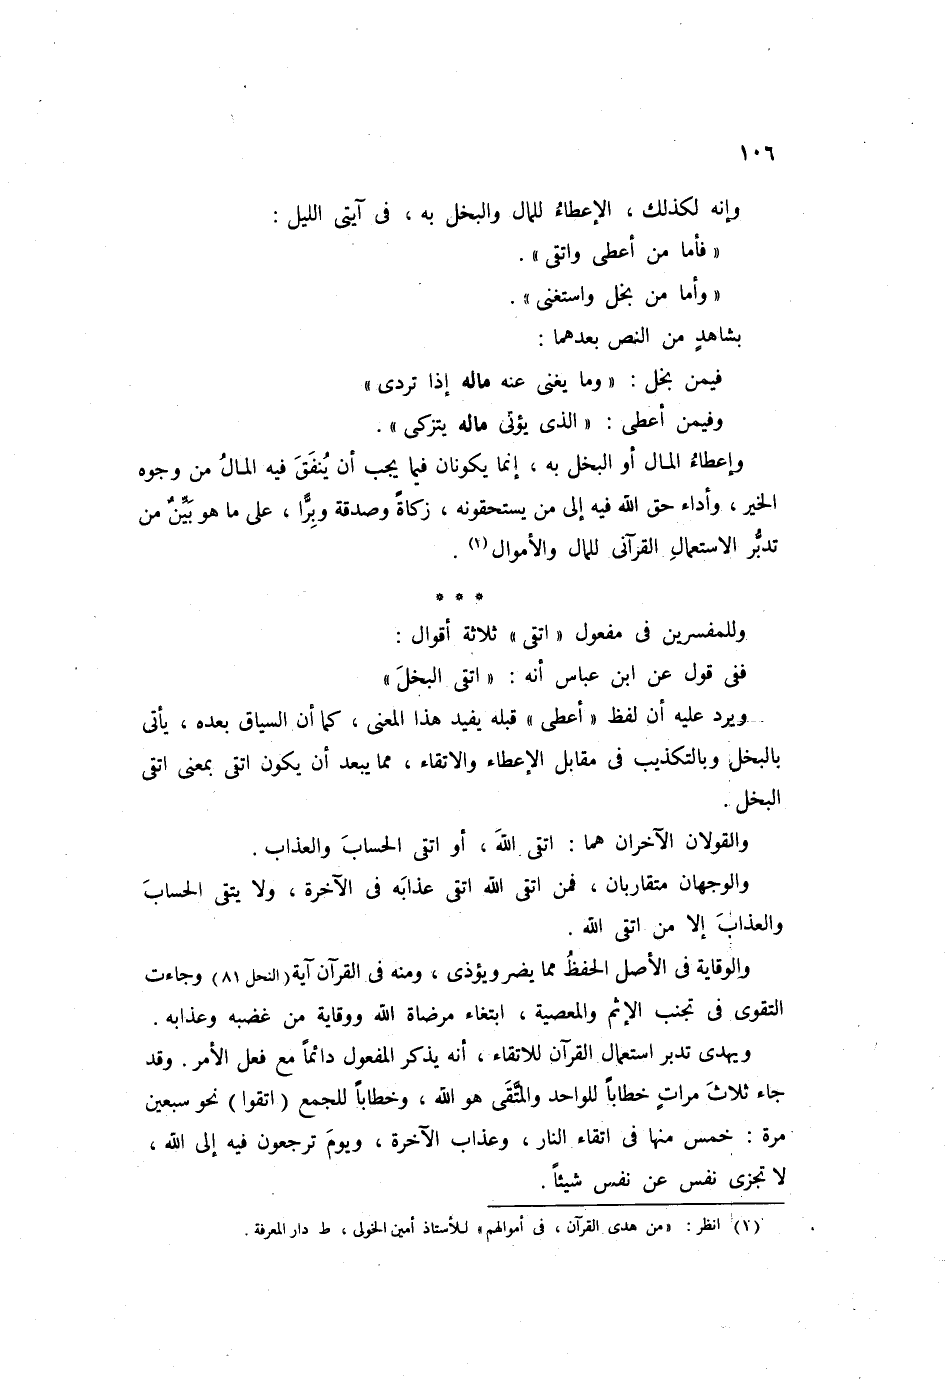 ١٠٦
وإنه لكذلك ، الإعطاءُ للمال والبخل به ، فى آيتى الليل :
« فأما من أعطى واتقى » .
« وأما من بخل واستغنى » .
بشاهدٍ من النص بعدهما :
فيمن بخل : « وما يغنى عنه ماله إذا تردى »
وفيمن أعطى : « الذى يؤتى ماله يتزكى » .
وإعطاءُ المـال أو البخل به ، إنما يكونان فيما يجب أن يُنفَقَ فيه المـالُ من وجوه
الخير ، وأداء حق الله فيه إلى من يستحقونه ، زكاةً وصدقة وبِرًّا ، على ما هو بَيِّنٌ من
تدبُّر الاستعمالِ القرآنى للمال والأموال (١) .
* * *
وللمفسرين فى مفعول « اتقى » ثلاثة أقوال :
ففى قول عن ابن عباس أنه : « اتقى البخلَ »
ويرد عليه أن لفظ « أعطى » قبله يفيد هذا المعنى ، كما أن السياق بعده ، يأتى
بالبخل وبالتكذيب فى مقابل الإعطاء والاتقاء ، مما يبعد أن يكون اتقى بمعنى اتقى
البخل .
والقولان الآخران هما : اتقى اللهَ ، أو اتقى الحسابَ والعذاب .
والوجهان متقاربان ، فمن اتقى الله اتقى عذابَه فى الآخرة ، ولا يتقى الحسابَ
والعذابَ إلا من اتقى الله .
والوقاية فى الأصل الحفظُ مما يضر ويؤذى ، ومنه فى القرآن آية (النحل ٨١) وجاءت
التقوى فى تجنب الإثم والمعصية ، ابتغاء مرضاة الله ووقاية من غضبه وعذابه .
ويهدى تدبر استعمال القرآن للاتقاء ، أنه يذكر المفعول دائماً مع فعل الأمر . وقد
جاء ثلاثَ مراتٍ خطاباً للواحد والمتَّقَى هو الله ، وخطاباً للجمع ( اتقوا ) نحو سبعين
مرة : خمس منها فى اتقاء النار ، وعذاب الآخرة ، ويومَ ترجعون فيه إلى الله ،
لا تجزى نفس عن نفس شيئاً .
(١) انظر : «من هدى القرآن ، فى أموالهم» للأستاذ أمين الخولى ، ط دار المعرفة .